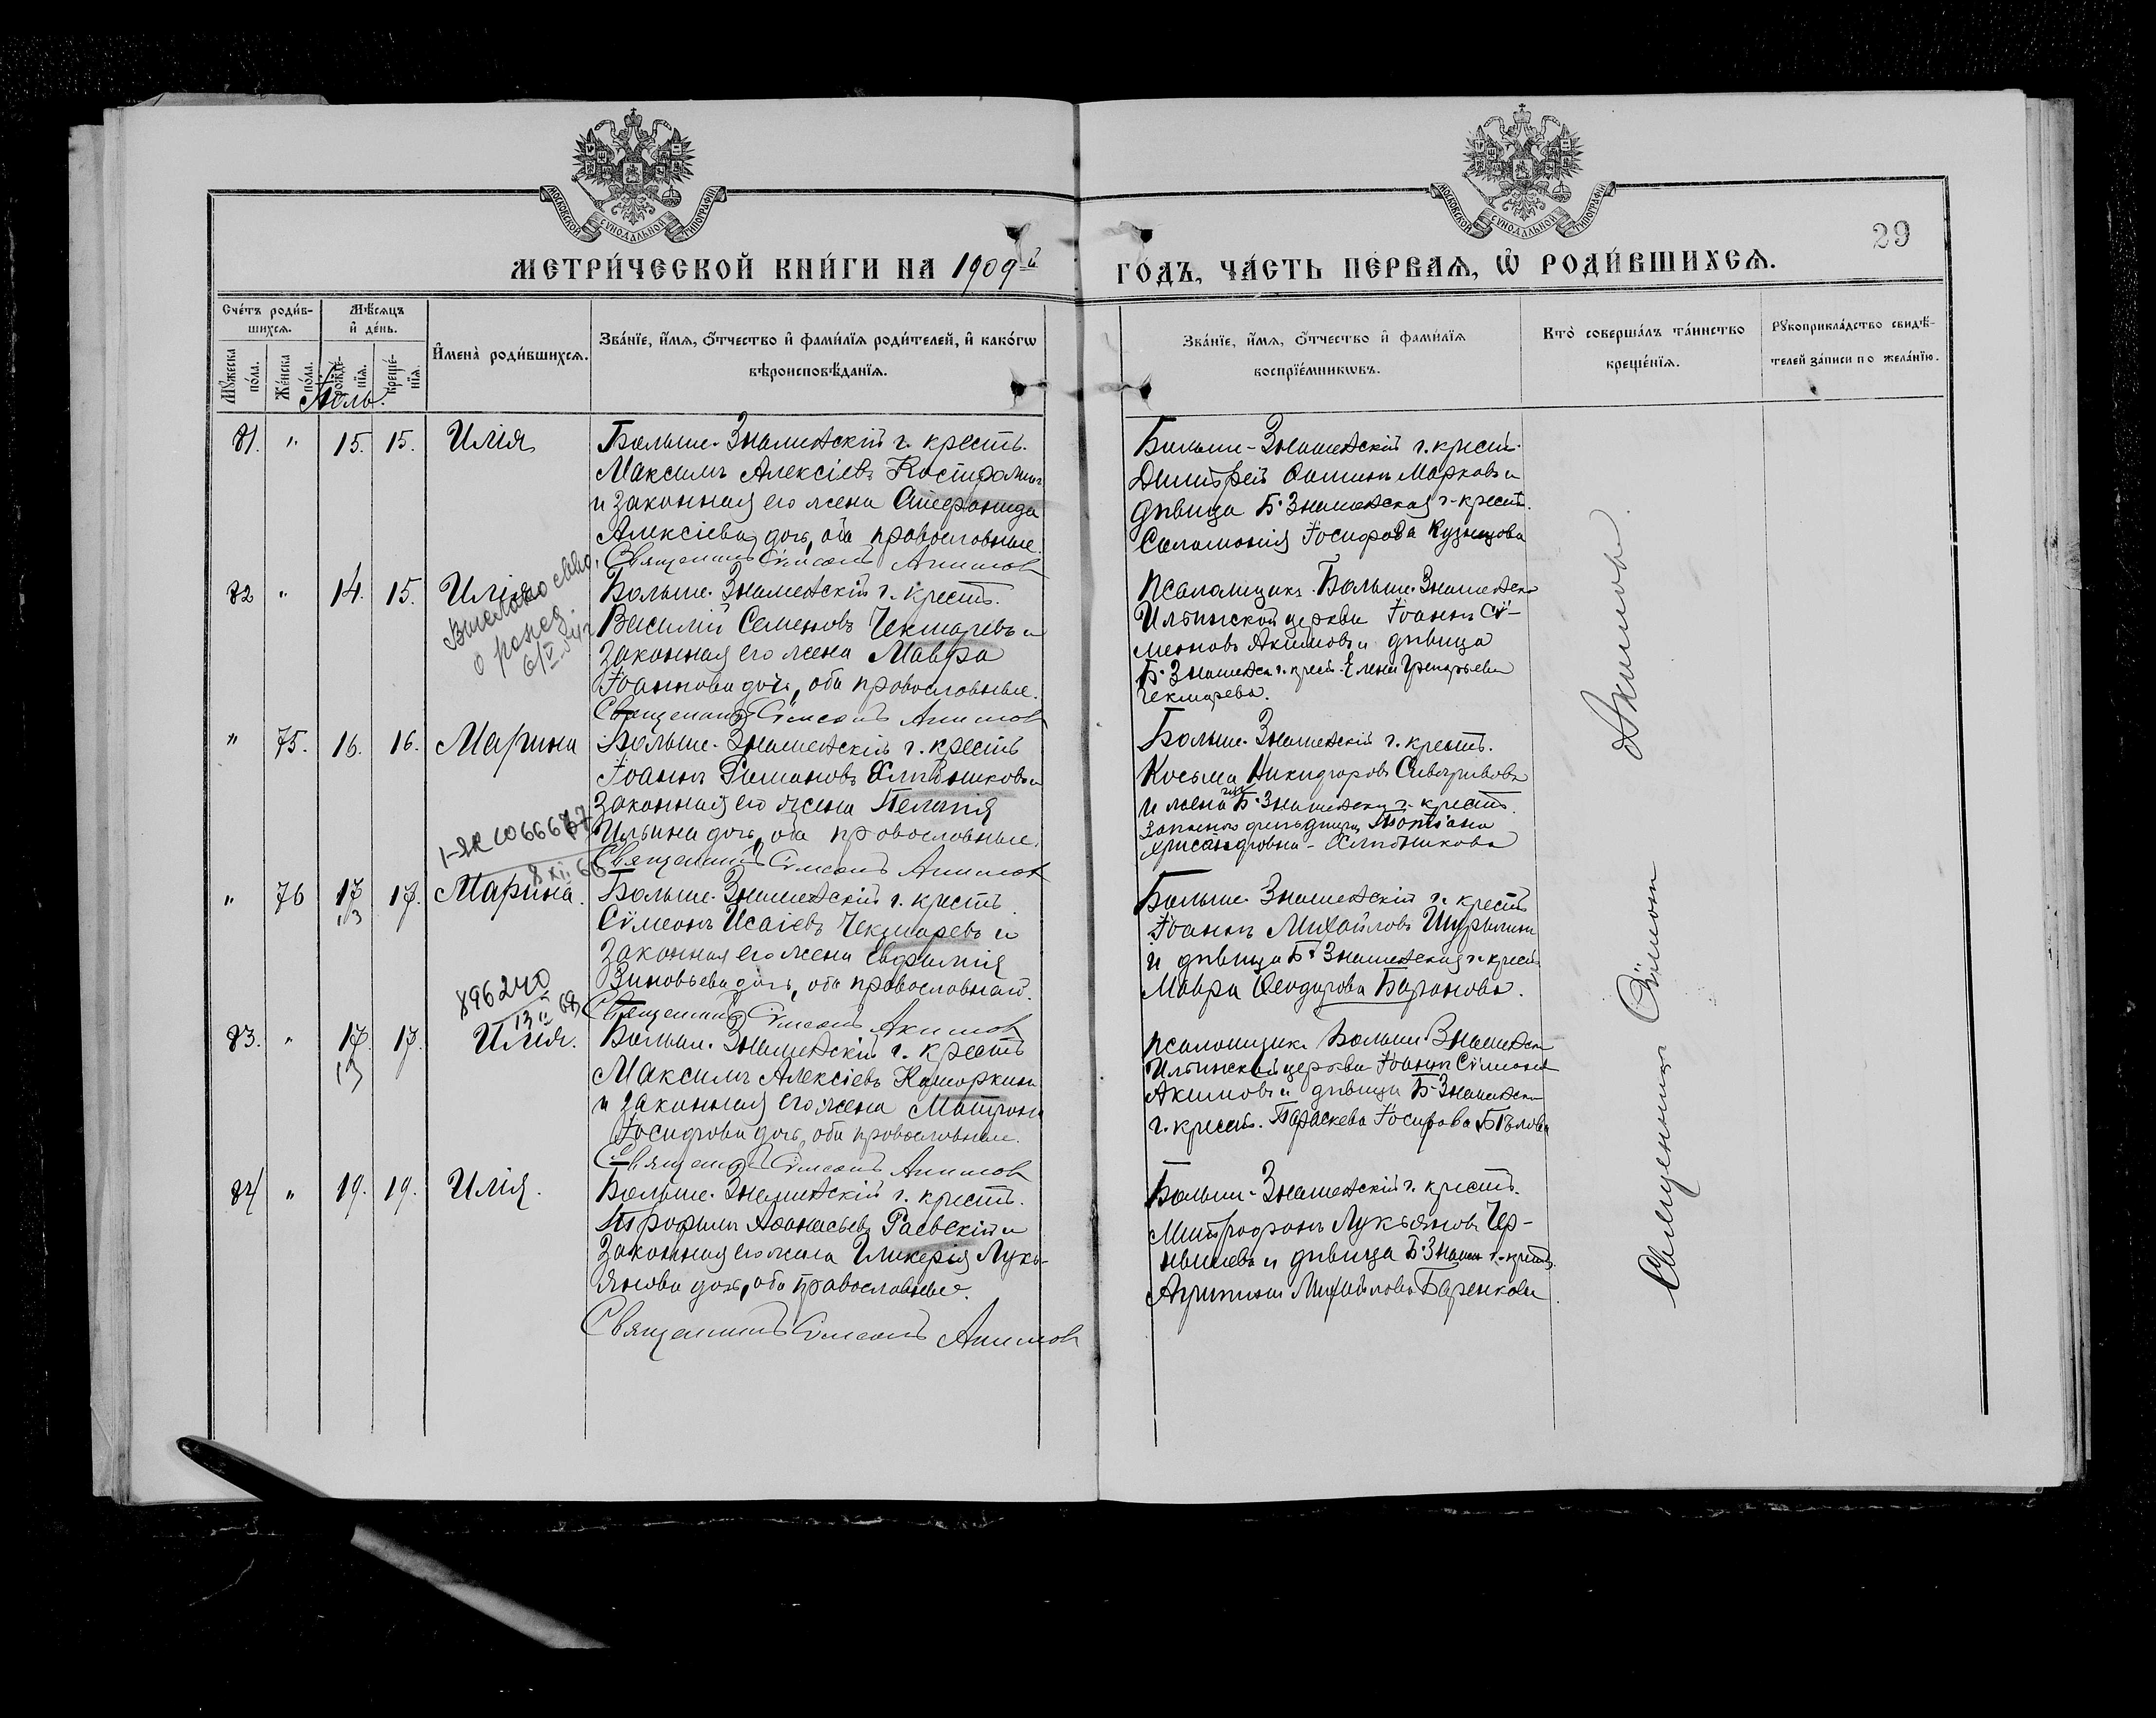 МОСКОВСКОЙ СѴНОДАЛЬНОЙ ТИПОГРАФІИ
МОСКОВСКОЙ СѴНОДАЛЬНОЙ ТИПОГРАФІИ
29
МЕТРИ́ЧЕСКОЙ КНИ́ГИ НА 1909й ГО́ДЪ, ЧА́СТЬ ПЕ́РВАѦ, Ѡ҆ РОДИ́ВШИХСѦ.
Сче́тъ роди́в-
шихсѧ.
Мѣ́сѧцъ
и҆ де́нь.
Мꙋ́жеска
по́ла.
Же́нска
по́ла.
рожде́-
нїѧ.
креще́-
нїѧ.
И҆мена̀ роди́вшихсѧ.
Зва́нїе, и҆́мѧ, ѻ҆́тчество и҆ фами́лїѧ роди́телей, и҆ како́гѡ
вѣроисповѣ́данїѧ.
Зва́нїе, и҆́мѧ, ѻ҆́тчество и҆ фами́лїѧ
воспрїе́мникѡвъ.
Кто̀ соверша́лъ та́инство
креще́нїѧ.
Рꙋкоприкла́дство свидѣ́-
телей за́писи по жела́нїю.
Іюль.
81. " 15. 15. Илія
Больше-Знаменскій г. крест.
Максимъ Алексіевъ
и законная его жена Стефанида
Алексіева дочь, оба православные.
Священникъ Сѵмеонъ Акимовъ
Больше-Знаменскій г. крест.
Димитрій Марковъ и
дѣвица Б. Знаменская г. крест.
Соломонія Іосифова Кузнецова
82 " 14. 15. Илія
Выслано свид.
6/V
Больше-Знаменскій г. крест.
Василій Семеновъ Чекмаревъ и
законная его жена Мавра
Іоаннова дочь, оба православные.
Священникъ Сѵмеонъ Акимовъ
Псаломщикъ Больше-Знаменск
Ильинской церкви Іоаннъ Сѵ-
меоновъ Акимовъ и дѣвица
Б. Знаменск г. крест. Елена Григорьева
Чекмарева.
" 75. 16. 16. Марина
Больше-Знаменскій г. крестъ
Іоаннъ Хлѣбниковъ и
законная его жена Пелагія
Ильина дочь, оба православные.
Священникъ Сѵмеонъ Акимовъ
Больше-Знаменскій г. крест.
Косьма Никифоровъ
и жена Б. Знаменск г. крест.
Хрисанфовна - Хлѣбникова
8 XII 66
" 76 17 17. Марина.
13
Больше-Знаменскій г. крестъ
Сѵмеонъ Исаіевъ Чекмаревъ и
законная его жена Евфимія
Зиновьева дочь, оба православные.
Священникъ Сѵмеонъ Акимовъ
Больше-Знаменскій г. крестъ
Іоаннъ Михайловъ Шурыгинъ
и дѣвица Б. Знаменская г. крест
Мавра Ѳеодорова Баранова.
896240
13 II 68
83. " 17. 17. Илія.
13
Больше-Знаменскій г. крестъ
Максимъ Алексіевъ
и законная его жена Матрона
Іосифова дочь, оба православные.
Священникъ Сѵмеонъ Акимовъ
Псаломщикъ Больше-Знаменск
Ильинской церкви Іоаннъ Сѵмеонов
Акимовъ и дѣвица Б. Знаменск
г. крест. Параскева Іосифова Бѣлова
84 " 19. 19. Илія.
Больше-Знаменскій г. крест.
Трофимъ Аѳанасьевъ Раевскій и
законная его жена Гликерія Лукь-
янова дочь, оба православные.
Священникъ Сѵмеонъ Акимовъ
Больше-Знаменскій г. крест.
Митрофанъ Лукьяновъ Чер-
нышевъ и дѣвица Б. Знамен г. крест.
Агриппина Михайлова Баренкова
Священникъ Сѵмеонъ Акимовъ